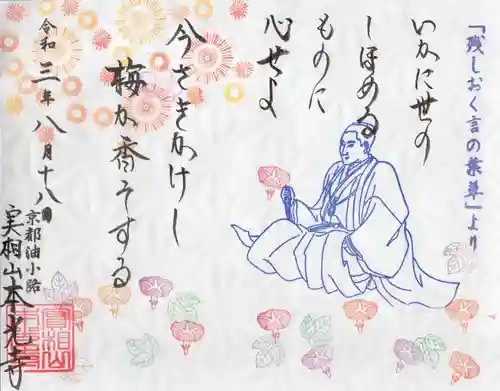 「残しおく言の葉草」より
いかに世の
しほめる
ものに
心せよ
今さきかけし
梅か香そする
令和三年八月十八日
京都油小路
実相山本光寺